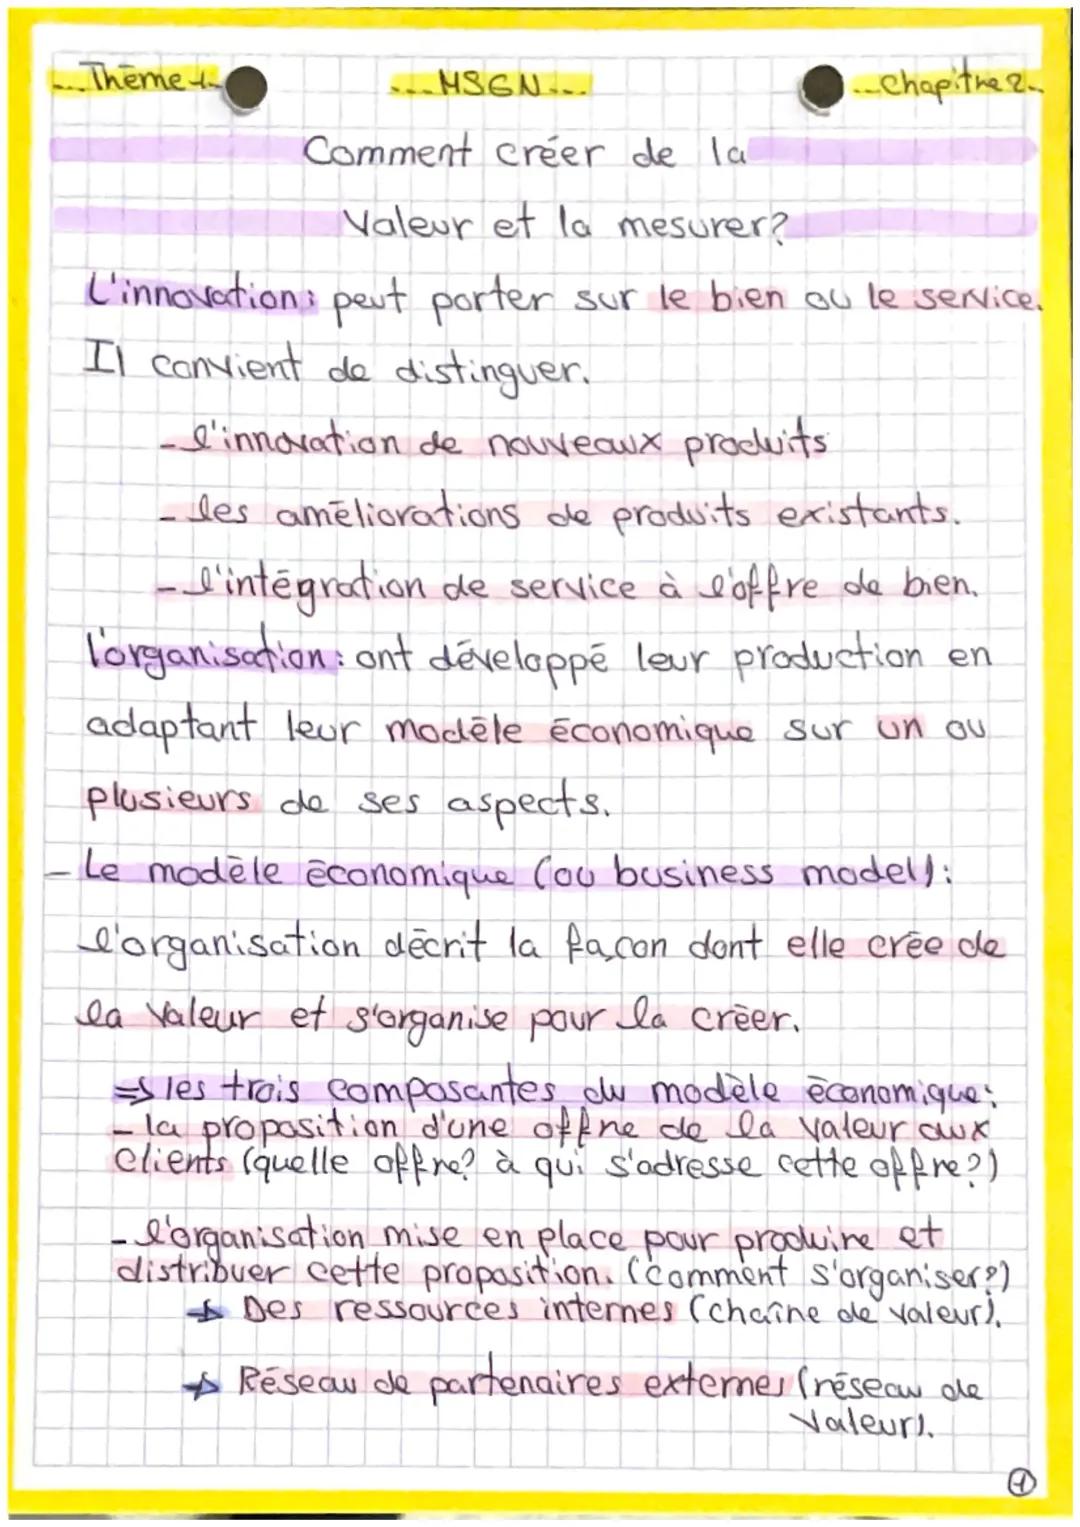 Thème 1 MSGN Chapitre 2
Comment créer de la
Valeur et la mesurer?
L'innovation: peut porter sur le bien ou le service.
Il convient de distinguer.
- l'innovation de nouveaux produits
- les améliorations de produits existants.
- l'intégration de service à l'offre de bien.
l'organisation: ont développé leur production en
adaptant leur modèle économique sur un ou
plusieurs de ses aspects.
- Le modèle économique (ou business model):
l'organisation décrit la façon dont elle crée de
la valeur et s'organise pour la créer.
⇒ les trois composantes du modèle économique:
- la proposition d'une offre de la valeur aux
Clients (quelle offre? à qui s'adresse cette offre?)
- l'organisation mise en place pour produire et
distribuer cette proposition. (comment s'organiser?)
→ Des ressources internes (chaîne de valeur).
→ Réseau de partenaires externes (réseau de
Valeur).
1